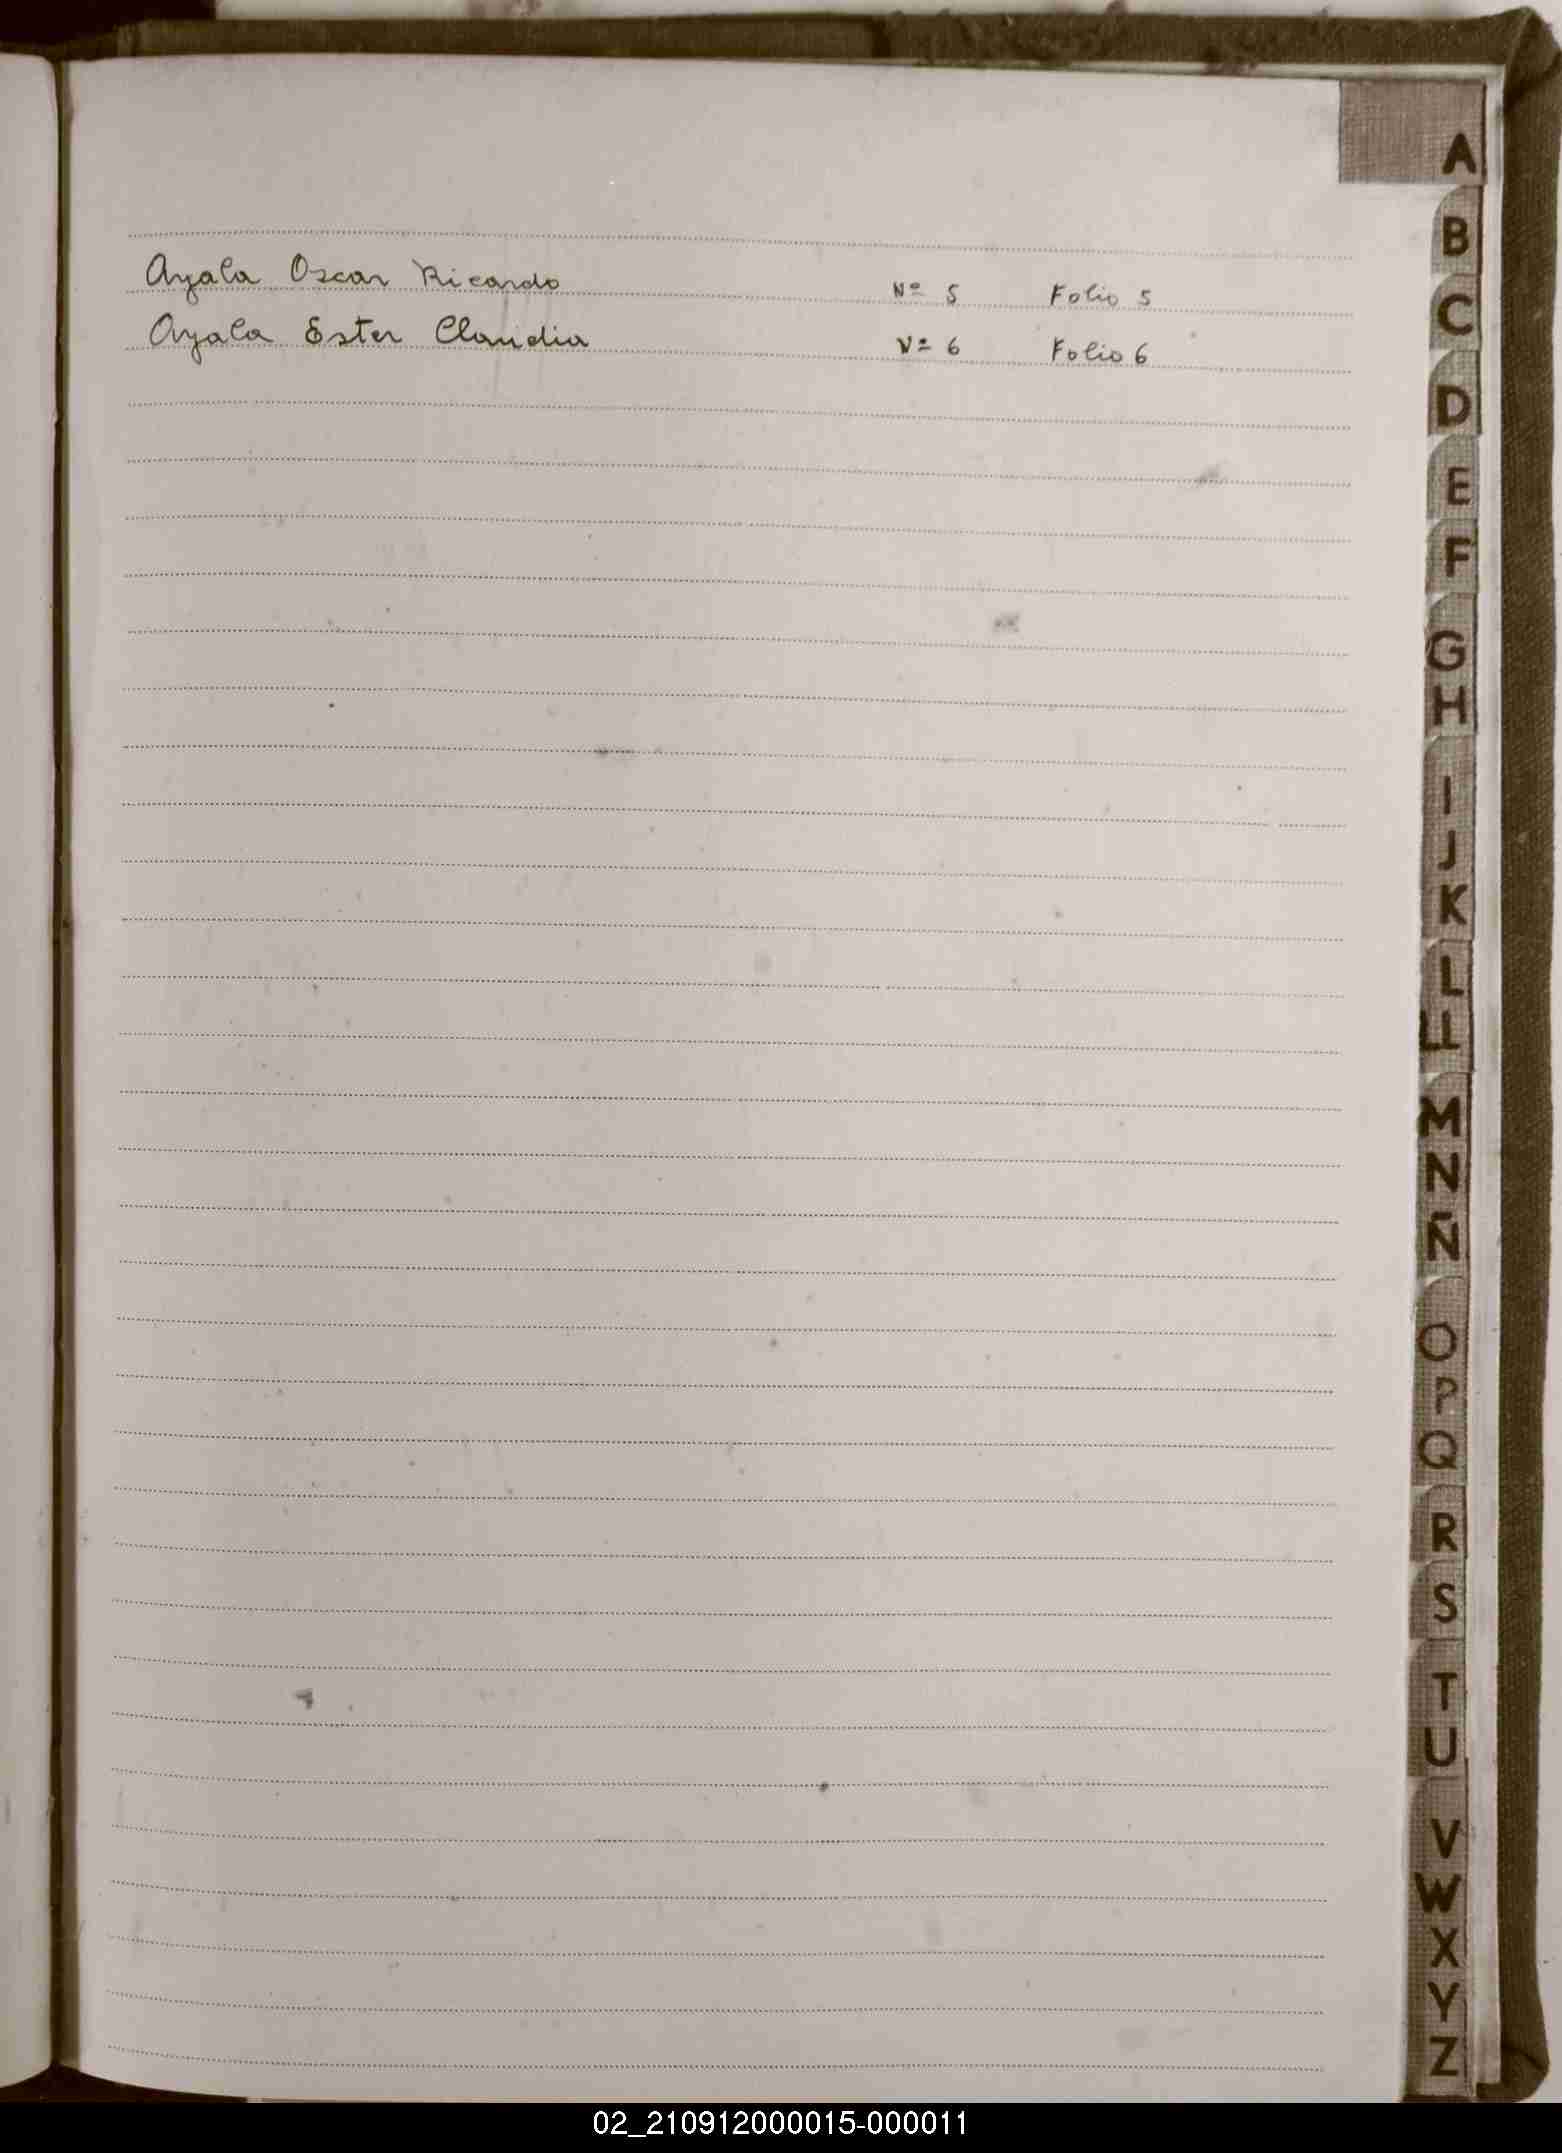 A
B
Ayala Oscar Ricardo Nº 5 Folio 5
C
Ayala Ester Claudia Nº 6 Folio 6
D
E
F
G
H
I
J
K
L
LL
M
N
Ñ
O
P
Q
R
S
T
U
V
W
X
Y
Z
02_210912000015-000011